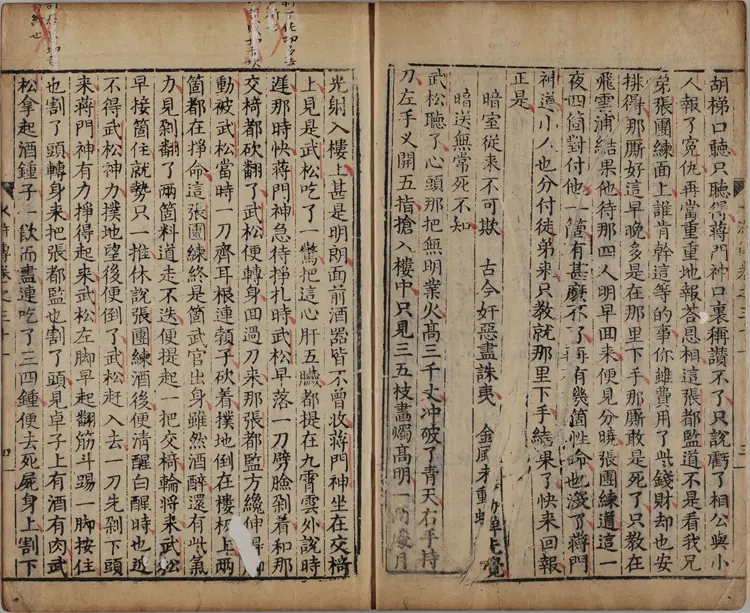 胡梯口聽只聽得蔣門神口裏稱讚不了只說虧了相公與小
人報了寃仇再當重重地報荅恩相這張都監道不是看我兄
弟張團練面上誰肯幹這等的事你雖費用了些錢財却也安
排得那厮好這早晚多是在那里下手那厮敢是死了只教在
飛雲浦結果他待那四人明早回來便見分曉張團練道這一
夜四箇對付他一箇有甚麽不了再有幾箇性命也没了蔣門
神道小人也分付徒弟來只教就那里下手結果了快來回報
正是
暗室從來不可欺　古今奸惡盡誅夷　金風未動蟬先覺
暗送無常死不知
武松聽了心頭那把無明業火髙三千丈冲破了青天右手持
刀左手义開五指搶入樓中只見三五枝畫燭髙明一兩處月
光射入樓上甚是明朗面前酒器皆不曾收蔣門神坐在交椅
上見是武松吃了一驚把這心肝五臟都提在九霄雲外說時
遲那時快蔣門神急待掙扎時武松早落一刀劈臉剁着和那
交椅都砍翻了武松便轉身回過刀來那張都監方纔伸得脚
動被武松當時一刀齊耳根連頸子砍着撲地倒在樓板上兩
箇都在掙命這張團練終是箇武官出身雖然酒醉還有些氣
力見剁翻了兩箇料道走不迭便提起一把交椅輪將來武松
早接箇住就勢只一推休說張團練酒後便清醒白醒時也近
不得武松神力撲地望後便倒了武松赶入去一刀先剁下頭
來蔣門神有力掙得起來武松左脚早起翻筋斗踢一脚按住
也割了頭轉身來把張都監也割了頭見卓子上有酒有肉武
松拿起酒鍾子一飲而盡連吃了三四鍾便去死屍身上割下
水滸傳卷之三十一
四